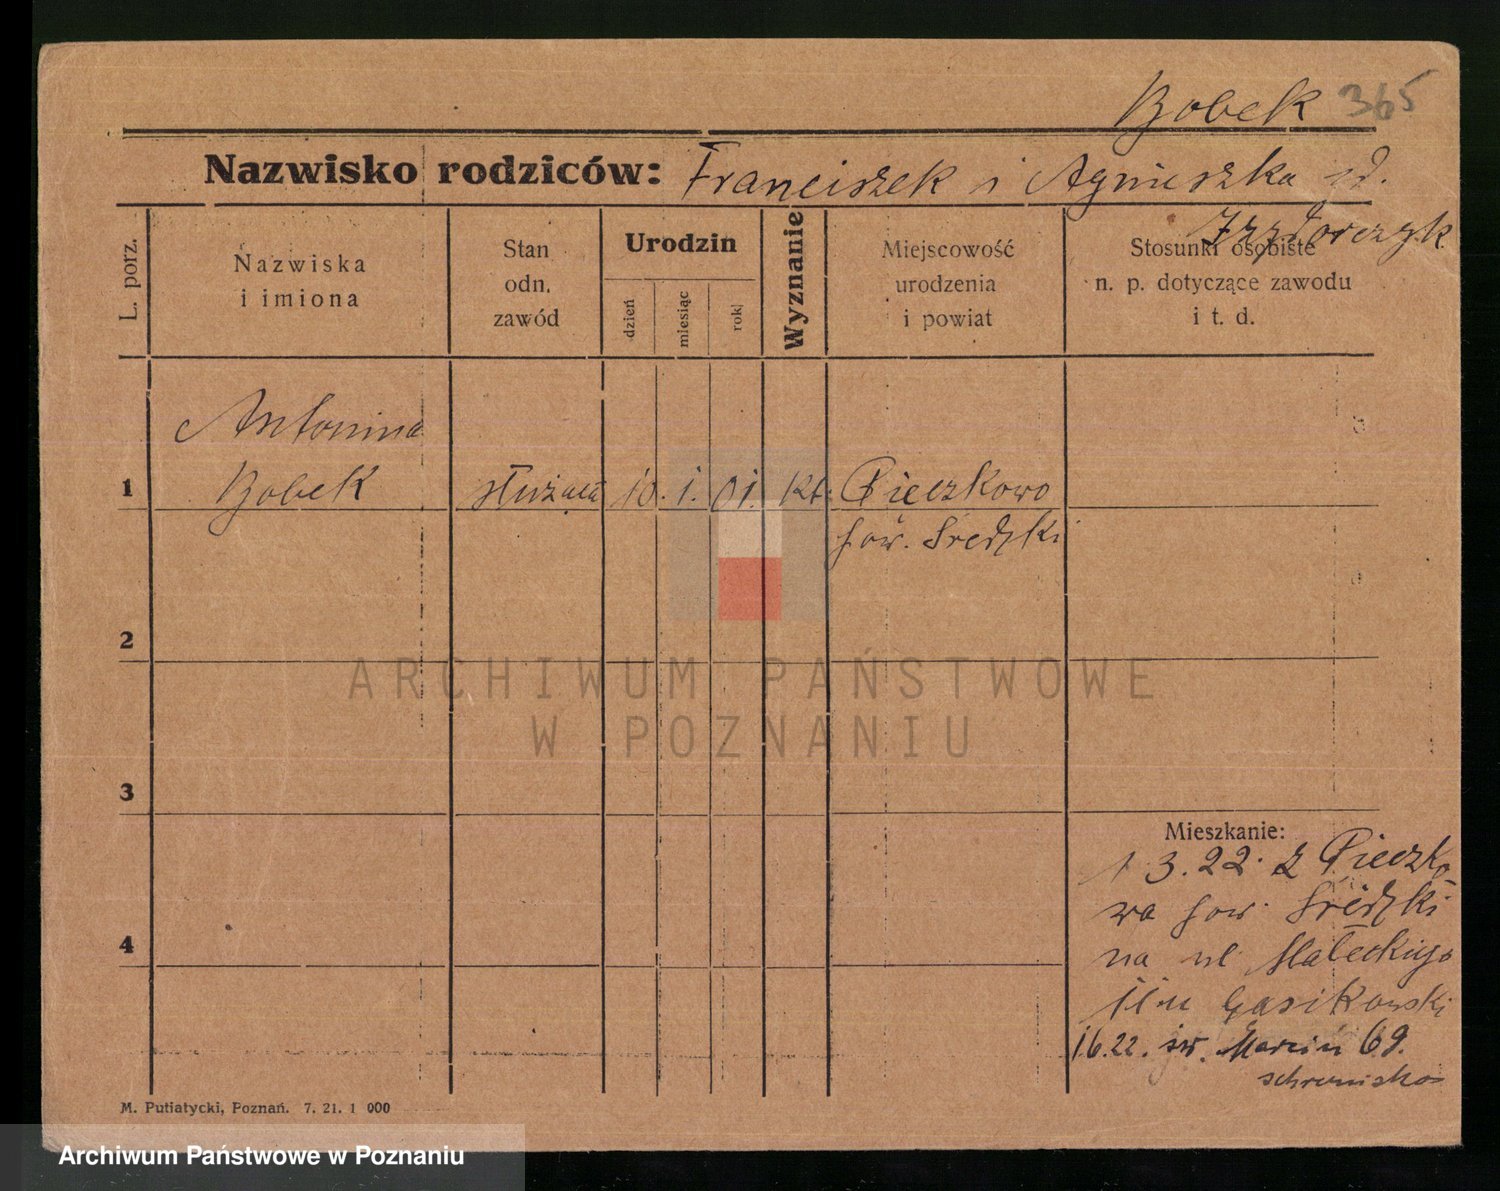 Bobek 365
Nazwisko rodziców: Franciszek i Agnieszka
L. porz.
Nazwiska
i imiona
Stan
odn.
zawód
Urodzin
dzień
miesiąc
rok
Wyznanie
Miejscowość
urodzenia
i powiat
Stosunki osobiste
n. p. dotyczące zawodu
i t. d.
Antonina
1 Bobek służąca 10. 1. 01. kt. Pieczkowo
pow. Średzki
2
ARCHIWUM PAŃSTWOWE
W POZNANIU
3
Mieszkanie:
1 3.22. z Pieczko
wa pow. Średzki
4
na ul Małeckiego
Gasikowski
1.6.22. św. Marcin 69.
schronisko
M. Putiatycki, Poznań. 7. 21. 1 000
Archiwum Państwowe w Poznaniu